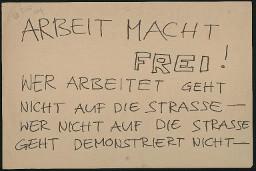 ARBEIT MACHT
FREI!
WER ARBEITET GEHT
NICHT AUF DIE STRASSE —
WER NICHT AUF DIE STRASSE
GEHT DEMONSTRIERT NICHT —